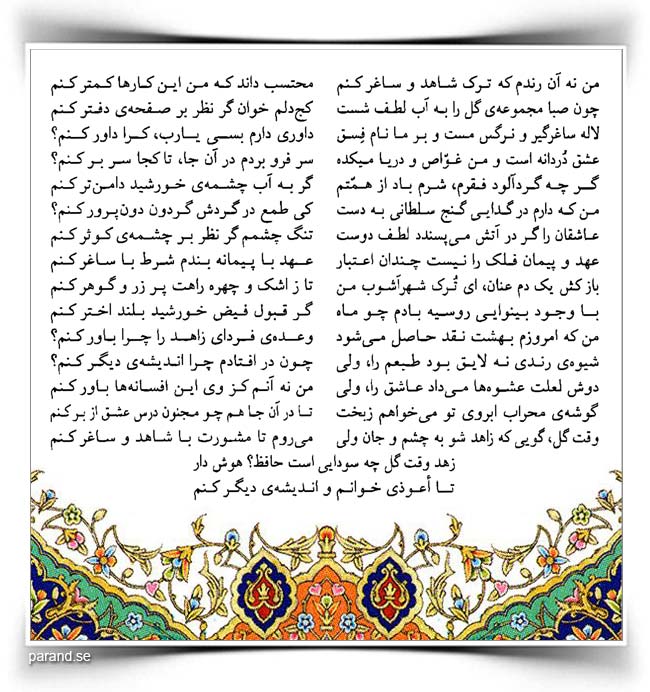 من نه آن رندم که ترک شاهد و ساغر کنم محتسب داند که من این کارها کمتر کنم
چون صبا مجموعه‌ی گل را به آب لطف شست کج‌دلم خوان گر نظر بر صفحه‌ی دفتر کنم
لاله ساغرگیر و نرگس مست و بر ما نام فِسق داوری دارم بسی یارب، کرا داور کنم؟
عشق دُردانه است و من غوّاص و دریا میکده سر فرو بردم در آن جا، تا کجا سر بر کنم؟
گر چه گردآلود فقرم، شرم باد از همّتم گر به آب چشمه‌ی خورشید دامن‌تر کنم
من که دارم در گدایی گنج سلطانی به دست کی طمع در گردش گردون دون‌پرور کنم؟
عاشقان را گر در آتش می‌پسندد لطف دوست تنگ چشمم گر نظر بر چشمه‌ی کوثر کنم
عهد و پیمان فلک را نیست چندان اعتبار عهد با پیمانه بندم شرط با ساغر کنم
باز کش یک دم عنان، ای تُرک شهرآشوب من تا ز اشک و چهره راهت پر زر و گوهر کنم
با وجود بینوایی روسیه بادم چو ماه گر قبول فیض خورشید بلند اختر کنم
من که امروزم بهشت نقد حاصل می‌شود وعده‌ی فردای زاهد را چرا باور کنم؟
شیوه‌ی رندی نه لایق بود طبعم را، ولی چون در افتادم چرا اندیشه‌ی دیگر کنم؟
دوش لعلت عشوه‌ها می‌داد عاشق را، ولی من نه آنم کز وی این افسانه‌ها باور کنم
گوشه‌ی محراب ابروی تو می‌خواهم زبخت تا در آن جا هم چو مجنون درس عشق از بر کنم
وقت گل، گویی که زاهد شو به چشم و جان ولی می‌روم تا مشورت با شاهد و ساغر کنم
زهد وقت گل چه سودایی است حافظ؟ هوش دار
تا أعوذی خوانم و اندیشه‌ی دیگر کنم
parand.se